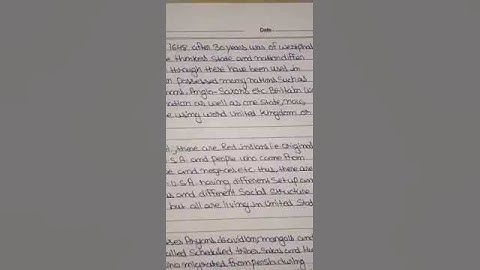 Date
1648 after 30 years war of westphal
e thinkers state and nation differ
through there have been used in
n possessed many nations such as
mans, Anglo-Saxons etc. Britain w
nation as well as one state, now,
e using word united kingdom or
, there are Red Indians i.e original
U.S.A. and people who came from
e and negroes etc. thus, there are
U.S.A. having different set up an
s and different Social Structure
but all are living in United Stat
Aryans dravidians, mongols and
called scheduled tribes, and Hu
migrated from persia during